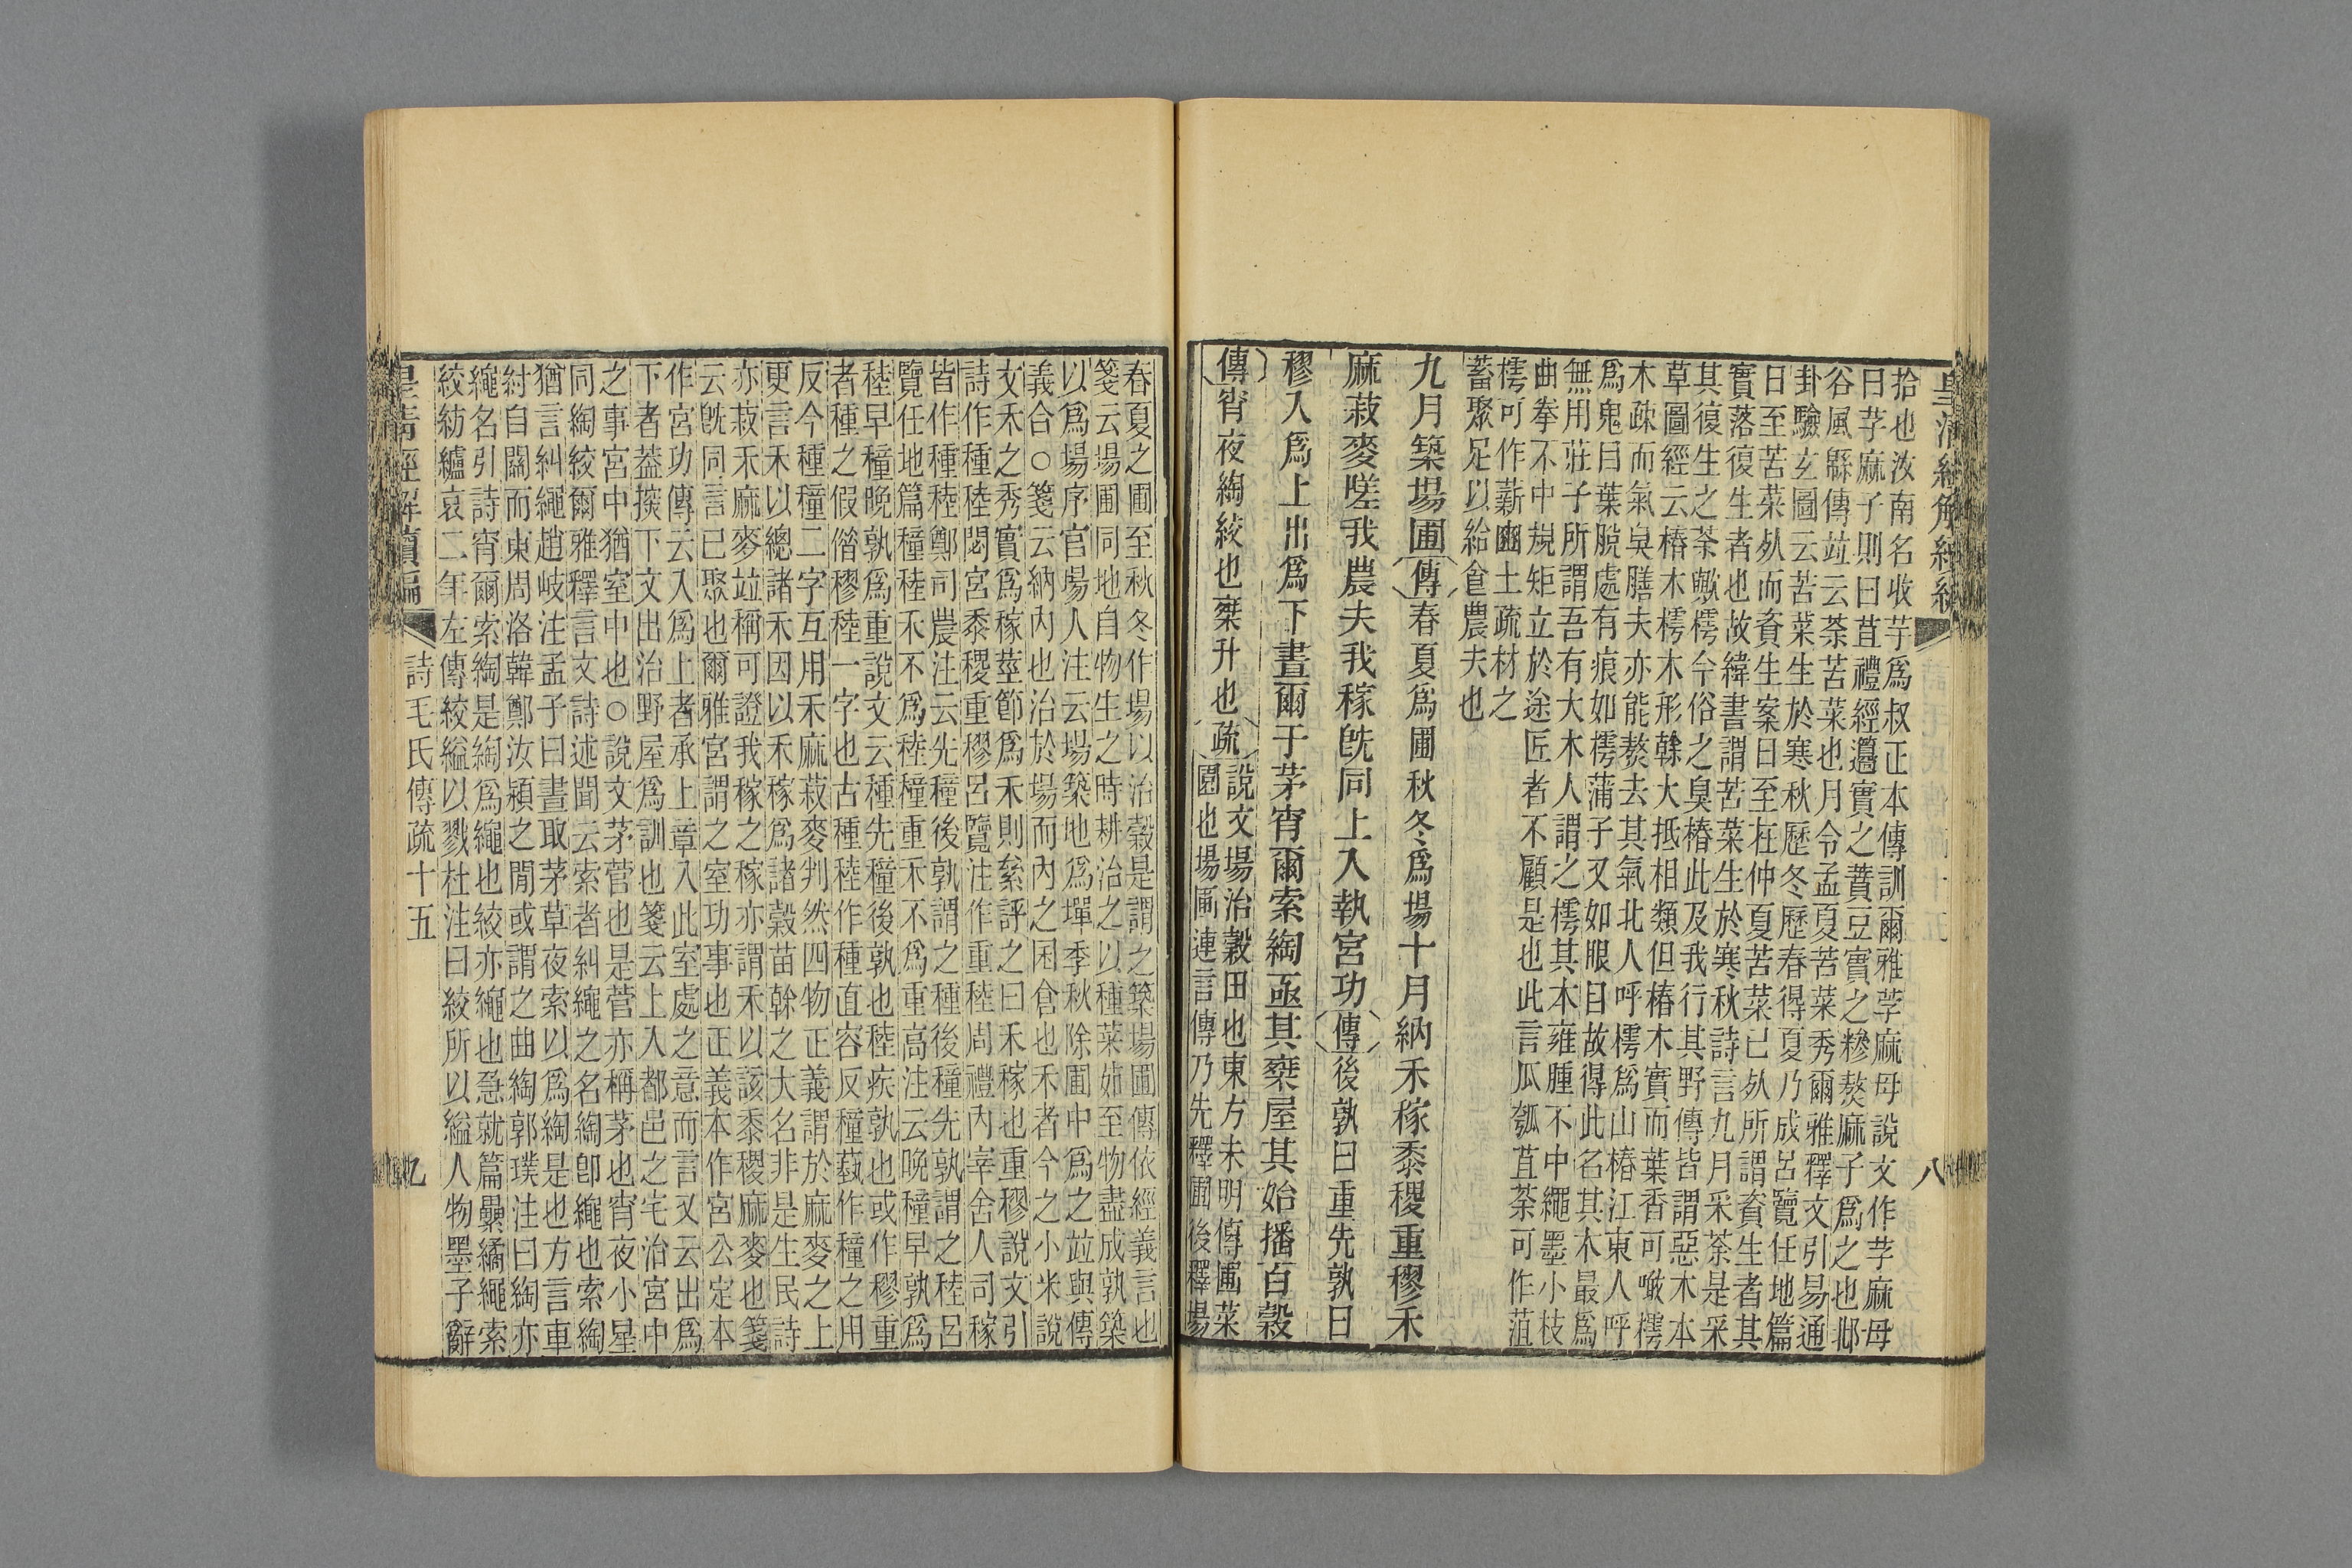 拾也汝南名收芋爲叔正本傳訓爾雅荢麻母說文作芓麻母
曰芓麻子則曰苴禮經籩實之蕡豆實之糝熬麻子爲之也邶
谷風緜傳竝云荼苦菜也月令孟夏苦菜秀爾雅釋文引易通
卦驗玄圖云苦菜生於寒秋歷冬歷春得夏乃成呂覽任地篇
日至苦菜死而資生案日至在仲夏苦菜已死所謂資生者其
實落復生者也故緯書謂苦菜生於寒秋詩言九月采荼是采
其復生之荼歟樗今俗之臭椿此及我行其野傳皆謂惡木本
草圖經云椿木樗木形榦大抵相類但椿木實而葉香可噉樗
木疎而氣臭膳夫亦能熬去其氣北人呼樗爲山椿江東人呼
爲鬼目葉脫處有痕如樗蒲子又如眼目故得此名其木最爲
無用莊子所謂吾有大木人謂之樗其本雍腫不中繩墨小枝
曲拳不中規矩立於途匠者不顧是也此言瓜瓠苴荼可作菹
樗可作薪豳土疏材之
蓄聚足以給食農夫也
九月築場圃傳春夏爲圃秋冬爲場十月納禾稼黍稷重穋禾
麻菽麥嗟我農夫我稼旣同上入執宮功傳後孰曰重先孰曰
穋入爲上出爲下晝爾于茅宵爾索綯亟其椉屋其始播百穀
傳宵夜綯絞也椉升也疏說文場治穀田也東方未明傳圃菜
園也場圃連言傳乃先釋圃後釋場
皇清經解續編
八
春夏之圃至秋冬作場以治穀是謂之築場圃傳依經義言也
箋云場圃同地自物生之時耕治之以種菜茹至物盡成孰築
以爲場序官場人注云場築地爲墠季秋除圃中爲之竝與傳
義合○箋云納內也治於場而內之囷倉也禾者今之小米說
文禾之秀實爲稼莖節爲禾則絫評之曰禾稼也重穋說文引
詩作種稑閟宮黍稷重穋呂覽注作重稑周禮內宰舍人司稼
皆作種稑鄭司農注云先穜後孰謂之種後穜先孰謂之稑呂
覽任地篇穜稑禾不爲稑穜重禾不爲重高注云晚穜早孰爲
稑早穜晚孰爲重說文云種先穜後孰也稑疾孰也或作穋重
者種之假偕穋稑一字也古種稑作種直容反穜蓺作穜之用
反今種穜二字互用禾麻菽麥判然四物正義謂於麻麥之上
更言禾以總諸禾因以禾稼爲諸穀苗榦之大名非是生民詩
亦菽禾麻麥竝稱可證我稼之稼亦謂禾以該黍稷麻麥也箋
云旣同言已聚也爾雅宮謂之室功事也正義本作宮公定本
作宮功傳云入爲上者承上章入此室處之意而言又云出爲
下者葢探下文出治野屋爲訓也箋云上入都邑之宅治宮中
之事宮中猶室中也○說文茅菅也是菅亦稱茅也宵夜小星
同綯絞爾雅釋言文詩述聞云索者糾繩之名綯卽繩也索綯
猶言糾繩趙岐注孟子曰晝取茅草夜索以爲綯是也方言車
紂自關而東周洛韓鄭汝潁之閒或謂之曲綯郭璞注曰綯亦
繩名引詩宵爾索綯是綯爲繩也絞亦繩也急就篇纍繘繩索
絞紡纑哀二年左傳絞縊以戮杜注曰絞所以縊人物墨子辭
皇清經解續編
詩毛氏傳疏十五
九